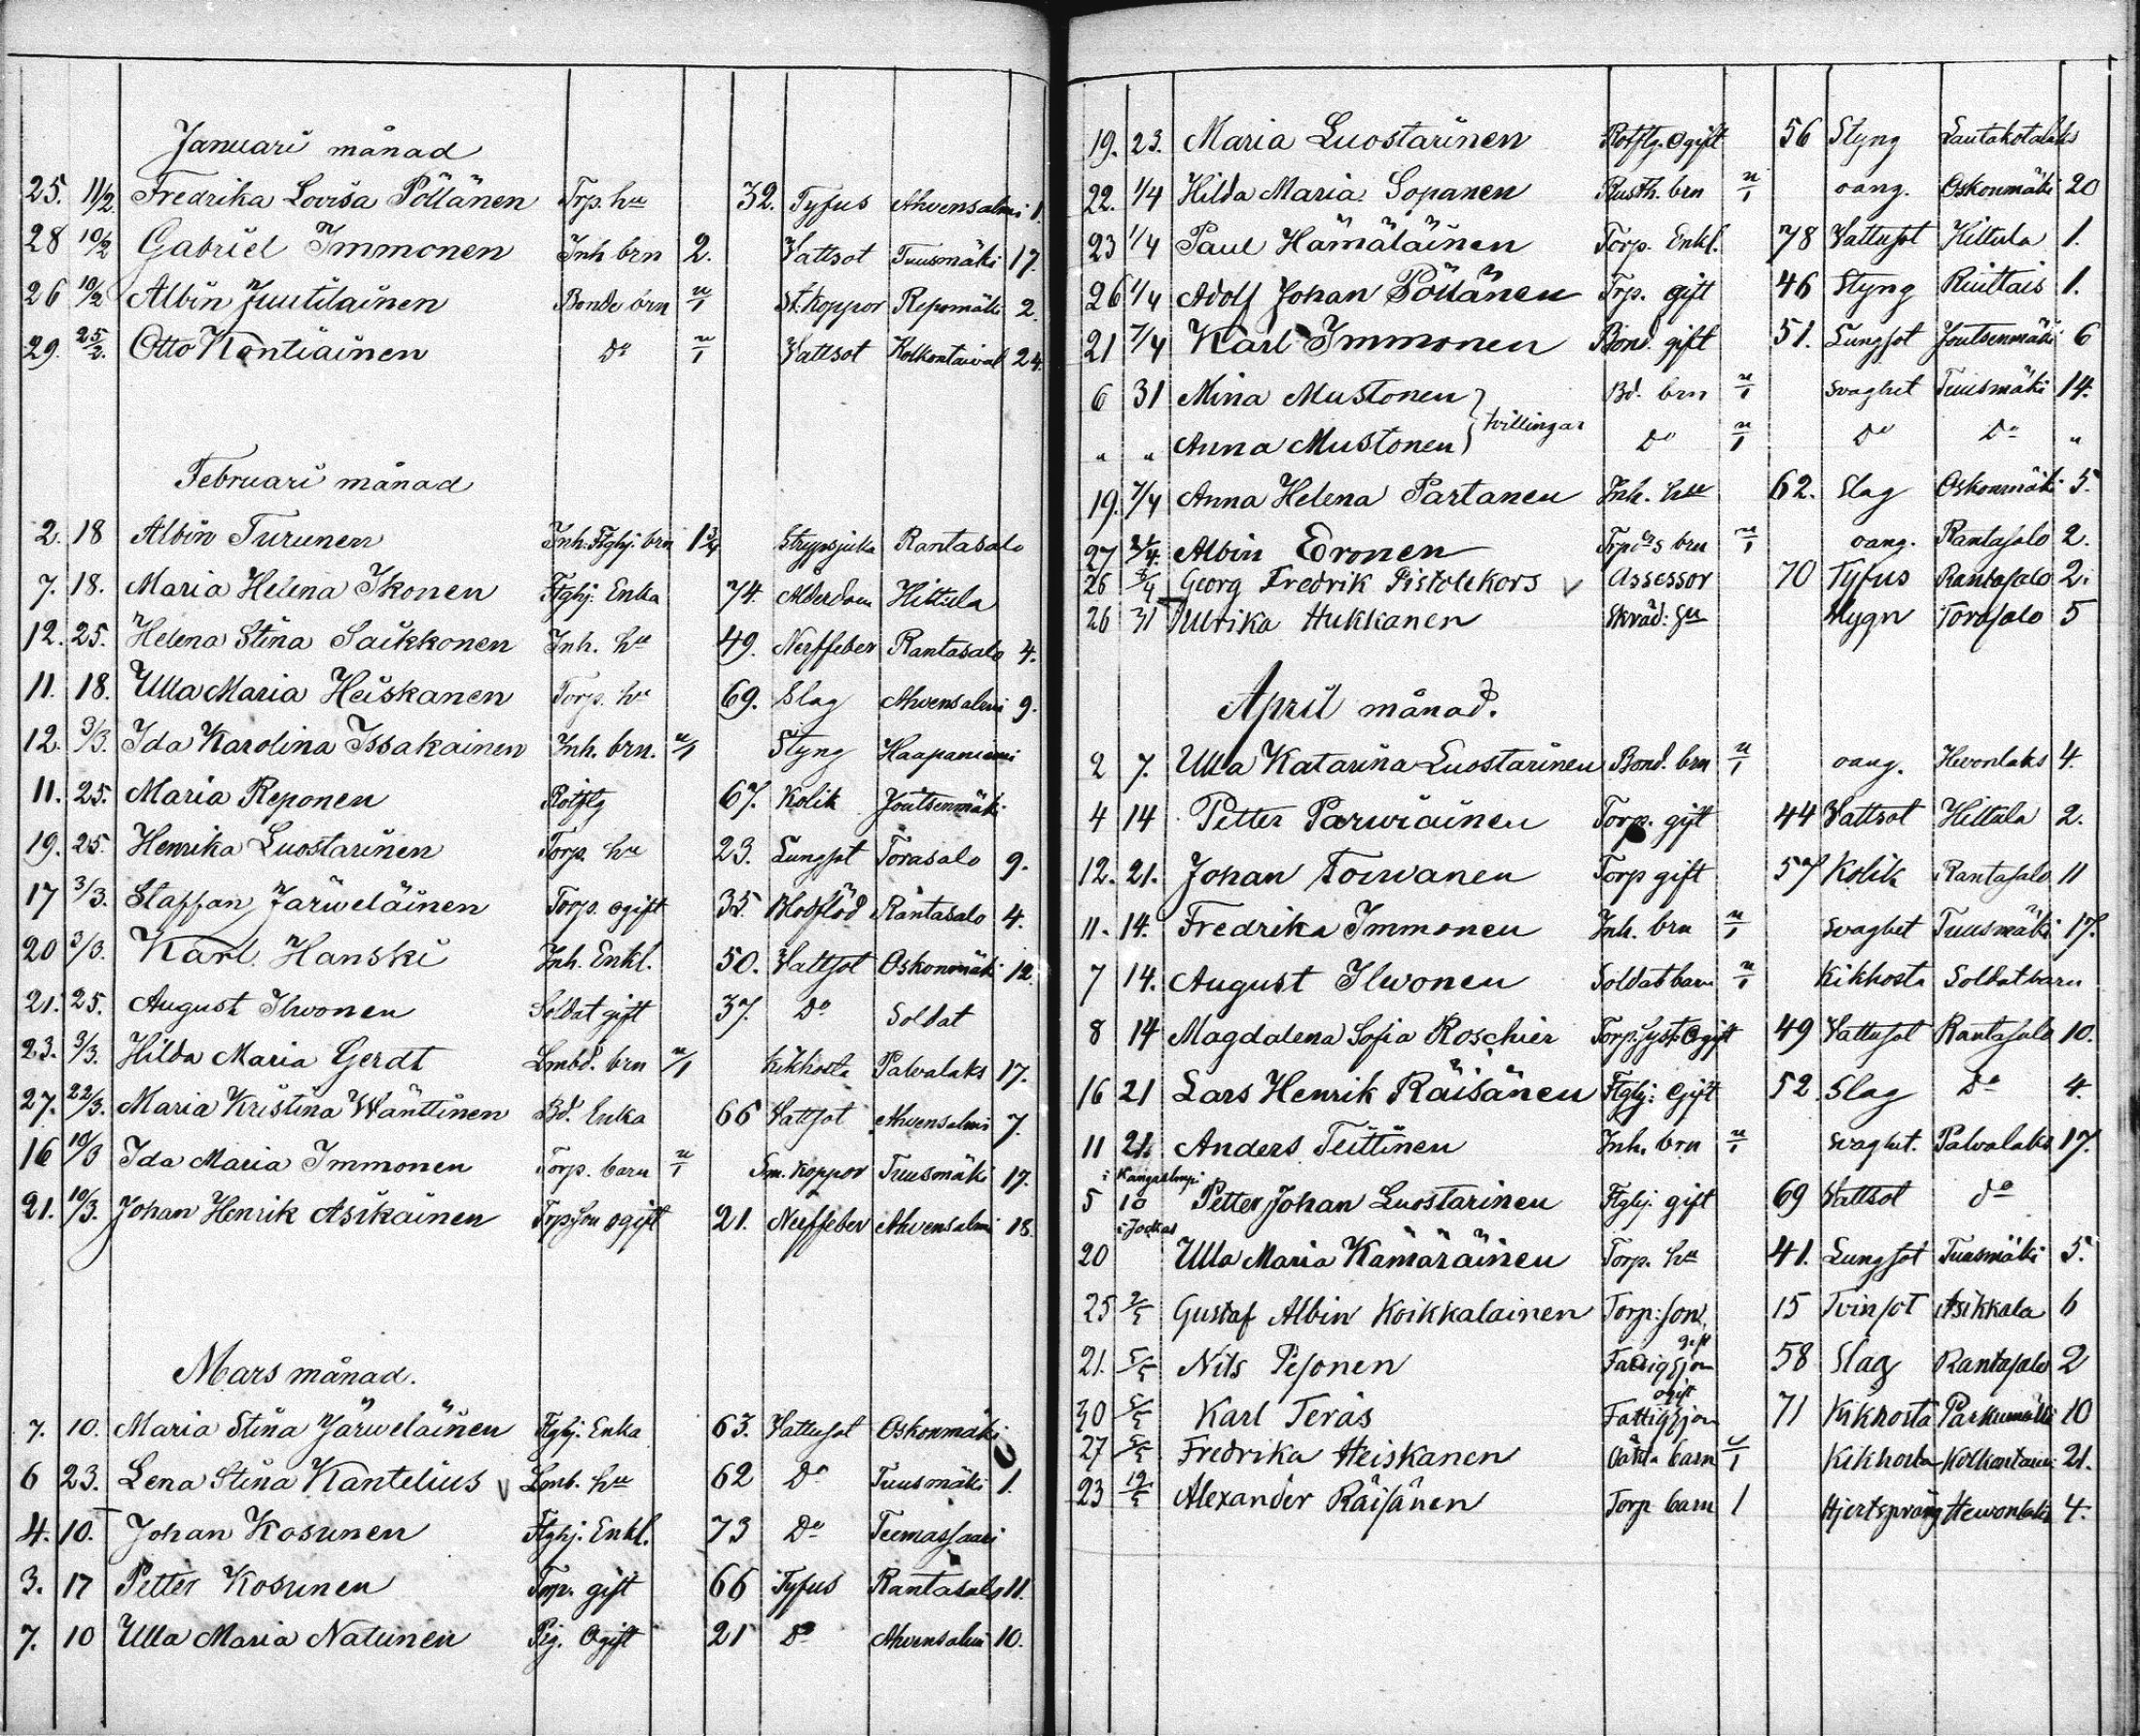 Januari månad
25. 11/2. Fredrika Lovisa Pöllänen Trp. hu 32. Tyfus Ahvensalmi 1.
28 10/2 Gabriel Immonen Inh brn 2. Vattsot Tuusmäki 17.
26 10/2 Albin Juutilainen Bonde brn u/1 St. koppor Repomäki 2.
29. 25/2. Otto Kontiainen Do u/1 Vattsot Kolkontaival 24.
Februari månad
2. 18 Albin Turunen Inh. Ftghj. brn 1 3/4 Strypsjuka Rantasalo
7. 18. Maria Helena Ikonen Ftghj. Enka 74. Ålderdom Hittula
12. 25. Helena Stina Saikkonen Inh. hu 49. Nerffeber Rantasalo 4.
11. 18. Ulla Maria Heiskanen Torp. hu 69. Slag Ahvensalmi 9.
12. 3/3. Ida Karolina Issakainen Inh. brn. u/1 Styng Haapaniemi
11. 25. Maria Reponen Rotflg 67. Kolik Joutsenmäki
19. 25. Henrika Luostarinen Torp. hu 23. Lungsot Torasalo 9.
17 3/3. Staffan Järweläinen Torp. ogift 35. Blodflöd Rantasalo 4.
20 3/3. Karl Hanski Inh. Enkl. 50. Vattsot Oskonmäki 12.
21. 25. August Ilwonen Soldat gift 37. Do Soldat
23. 3/3. Hilda Maria Gerdt Lmbd. brn u/1 Kikhosta Palvalaks 17.
27. 22/3. Maria Kristina Wänttinen Bd. Enka 66 Vattsot Ahvensalmi 7.
16 10/3 Ida Maria Immonen Torp. barn u/1 Sm. koppor Tuusmäki 17.
21. 10/3. Johan Henrik Asikainen Trp Son ogift 21. Nerffeber Ahvensalmi 18.
Mars månad.
7. 10. Maria Stina Järweläinen Ftghj. Enka 63. Vattusot Oskonmäki
6 23. Lena Stina Kantelius v Lmb. hu 62 Do Tuusmäki 1.
4. 10. Johan Kosunen Ftghj. Enkl. 73 Do Teemassaari
3. 17 Petter Kosunen Torp. gift 66 Tyfus Rantasalo 11.
7. 10 Ulla Maria Natunen Pig. Ogift 21 Do Ahvensalmi 10.
19. 23. Maria Luostarinen Rotflg. Ogift 56 Styng Lautakotalaks
22. 1/4 Hilda Maria Sopanen Rusth. brn u/1 oang. Oskonmäki 20
23 1/4 Paul Hämäläinen Torp. Enkl. 78 Vattusot Hittula 1.
26 1/4 Adolf Johan Pöllänen Trp. gift 46 Styng Ruittais 1.
21 7/4 Karl Immonen Bond. gift 51. Lungsot Joutsenmäki 6
6 31 Mina Mustonen Bd. brn u/1 Svaghet Tuusmäki 14.
tvillingar
" " Anna Mustonen Do u/1 Do Do "
19. 7/4 Anna Helena Partanen Inh. hu 62. Slag Oskonmäki 5.
27 Albin Eronen Trpers brn u/1 oang. Rantasalo 2.
26 3/4 Georg Fredrik Pistolekors v Assessor 70 Tyfus Rantasalo 2.
26 31 Ulrika Hukkanen Skräd: hu Stygn Torasalo 5
April månad.
2 7. Ulla Katarina Luostarinen Bond. brn u/1 oang. Hevonlaks 4.
4 14 Petter Parwiainen Torp. gift 44 Vattsot Hittula 2.
12. 21. Johan Toiwanen Torp gift 57 Kolik Rantasalo 11
11. 14. Fredrika Immonen Inh. brn u/1 Svaghet Tuusmäki 17.
7 14. August Ilwonen Soldat barn u/1 Kikhosta Soldat barn
8 14 Magdalena Sofia Roschier Torp. syst. Ogift 49 Vattusot Rantasalo 10.
16 21 Lars Henrik Räisänen Ftghj. Gift 52 Slag Do 4.
11 21. Anders Teittinen Inh. brn u/1 Svaghet. Palvalaks 17.
i Kangaslampi
5 10 Petter Johan Luostarinen Ftghj. gift 69 Vattsot do
i Jockas
20 Ulla Maria Kämäräinen Torp. hu 41. Lungsot Tuusmäki 5.
25 2/5 Gustaf Albin Koikkalainen Torp: son 15 Tvinsot Asikkala 6
21. 5/5 Nils Pesonen Fattighjon gift 58 Slag Rantasalo 2
30 5/5 Karl Teräs Fattighjon ogift 71 Kikhosta Parkumäki 10
27 5/5 Fredrika Heiskanen Oäkta barn u/1 Kikhosta Kolkontaiw: 21.
23 12/5 Alexander Räisänen Torp barn 1 Hjertsprång Hewonlaks 4.